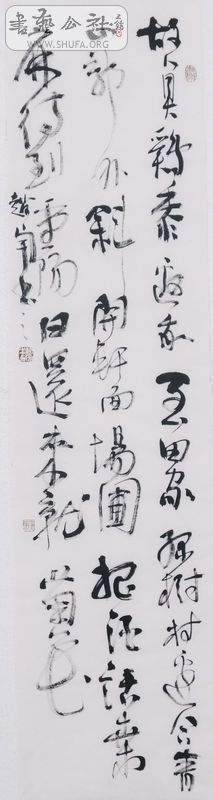 書藝公社
WWW.SHUFA.ORG
故人具鸡黍邀我至田家绿树村边合青
山郭外斜開轩面場圃把酒話桑
麻待到重陽日還来就菊花